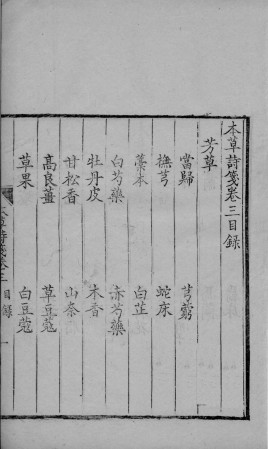 本草詩箋卷三目錄
芳草
當歸 芎藭
撫芎 蛇床
藁本 白芷
白芍藥 赤芍藥
牡丹皮 木香
甘松香 山柰
高良薑 草豆蔻
草果 白豆蔻
本草詩箋卷三 目錄 一